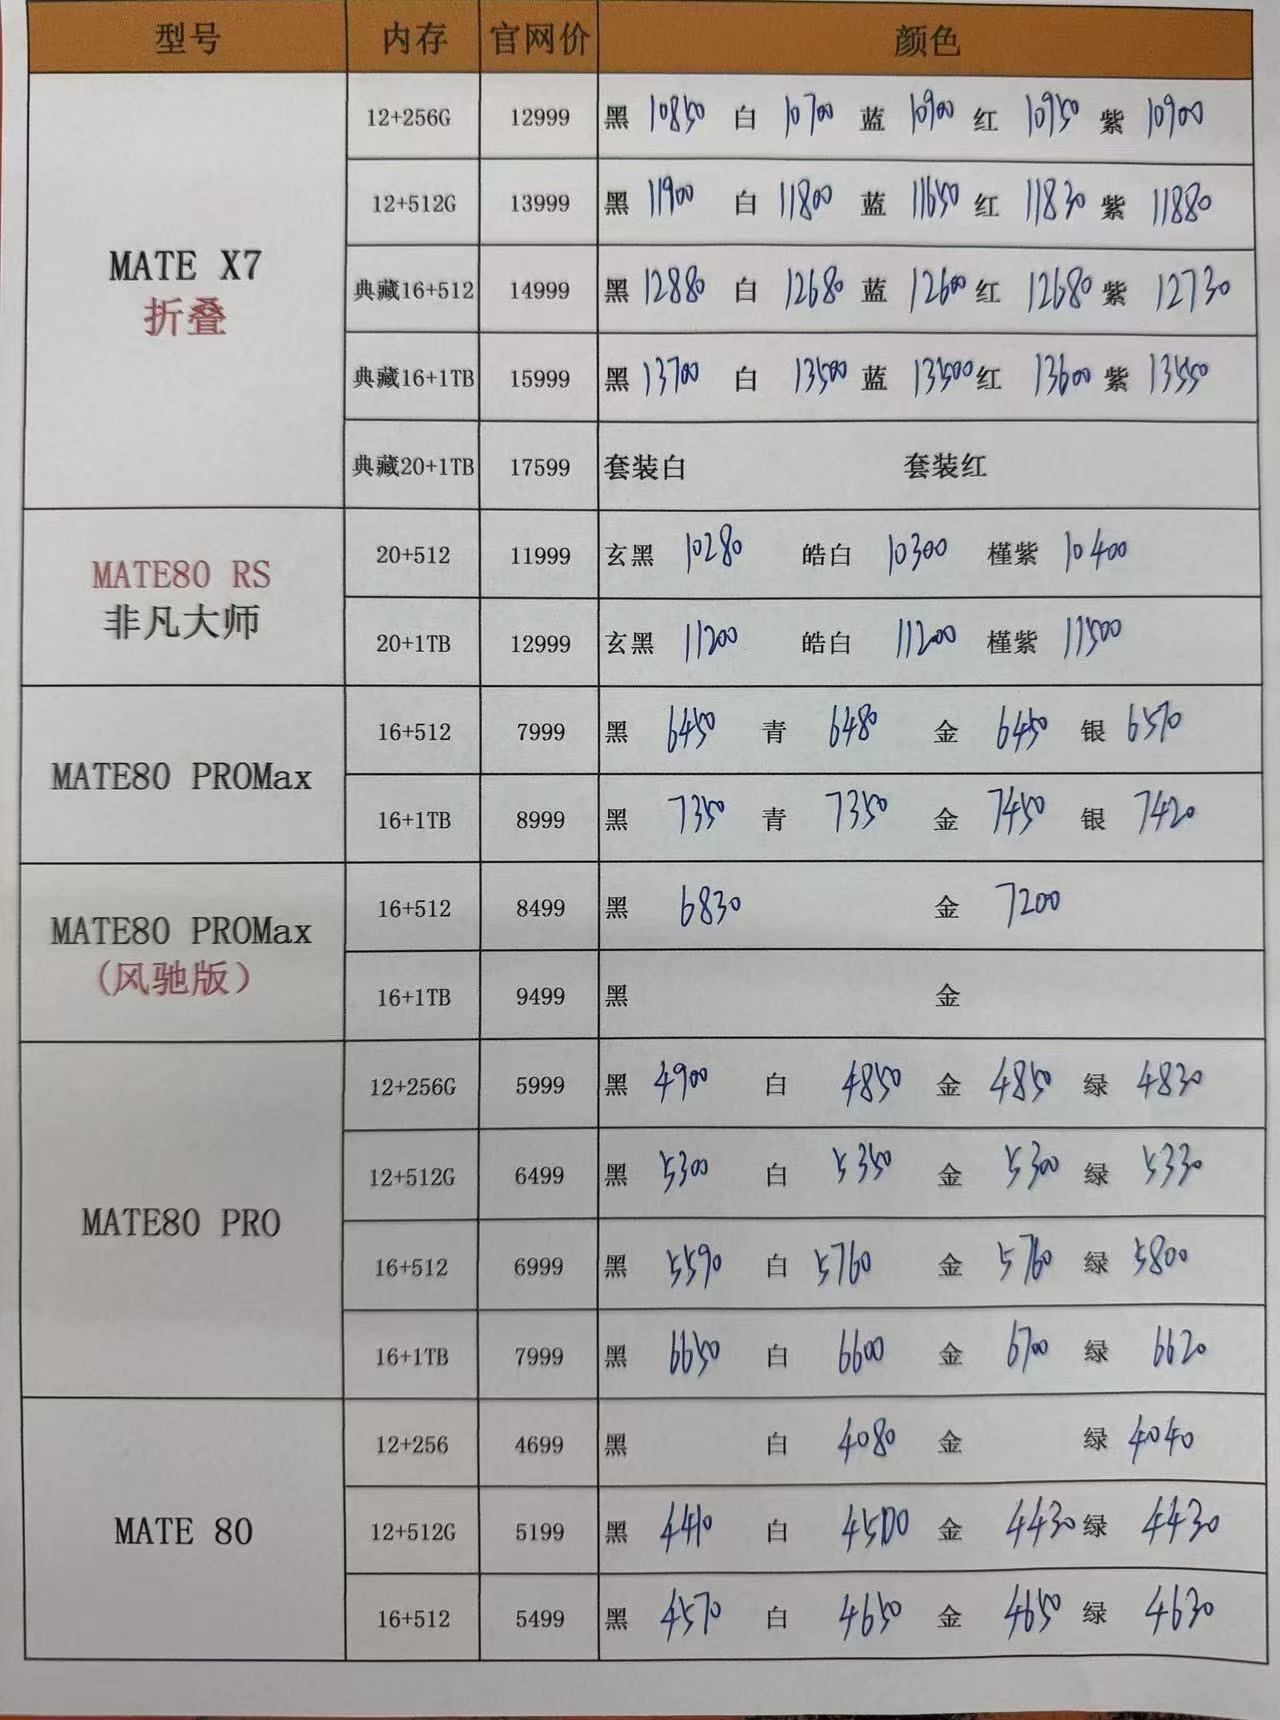 型号 内存 官网价 颜色
12+256G 12999 黑 10850 白 10700 蓝 10900 红 10950 紫 10900
12+512G 13999 黑 11900 白 11800 蓝 11650 红 11830 紫 11880
MATE X7
折叠
典藏16+512 14999 黑 12880 白 12680 蓝 12600 红 12680 紫 12730
典藏16+1TB 15999 黑 13700 白 13500 蓝 13500 红 13600 紫 13550
典藏20+1TB 17599 套装白 套装红
MATE80 RS
非凡大师
20+512 11999 玄黑 10280 皓白 10300 槿紫 10400
20+1TB 12999 玄黑 11200 皓白 11200 槿紫 11500
MATE80 PROMax
16+512 7999 黑 6450 青 6480 金 6450 银 6570
16+1TB 8999 黑 7350 青 7350 金 7450 银 7420
MATE80 PROMax
(风驰版)
16+512 8499 黑 6830 金 7200
16+1TB 9499 黑 金
MATE80 PRO
12+256G 5999 黑 4900 白 4850 金 4850 绿 4830
12+512G 6499 黑 5300 白 5350 金 5300 绿 5330
16+512 6999 黑 5590 白 5760 金 5760 绿 5800
16+1TB 7999 黑 6650 白 6600 金 6700 绿 6620
MATE 80
12+256 4699 黑 白 4080 金 绿 4040
12+512G 5199 黑 4410 白 4500 金 4430 绿 4430
16+512 5499 黑 4570 白 4650 金 4650 绿 4630